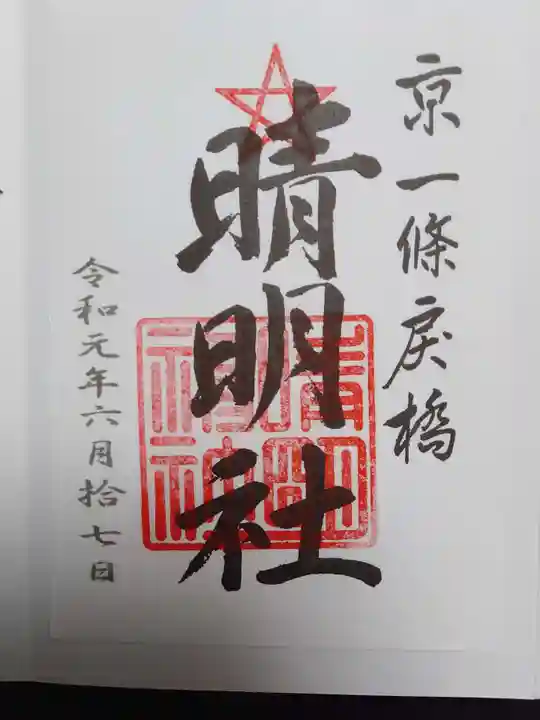 京一條戻橋
晴明社
晴明
神社
令和元年六月拾七日